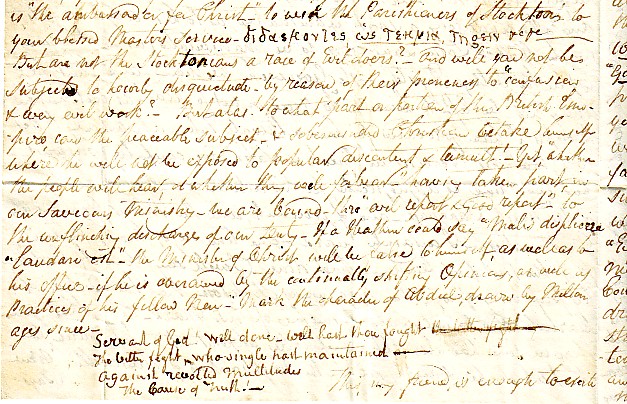 is "the ambassador for Christ" to win the Parishioners of Stockton to
your blessed Master's Service -
But are not the Stocktonians a race of Evil doers? - and will you not be
Subjected to hourly disquietude - by reason of their proneness to "confusion
& every evil work"? - But alas! to what part or portion of this British Em-
pire can the peaceable subject - & sober minded Christian betake himself
where he will not be exposed to popular discontent & tumult! - Yet, "whether
the people will hear, or whether they will forbear" having taken part in
our Saviours Ministry - we are bound thro' "evil report & good report" to
the unflinching discharge of our Duty - If a Heathen could say "Malis displicere
"laudari est" - the Minister of Christ will be false to himself, as well as to
his office - if he is overawed by the continually shifting Opinions, as well as
Practices of his fellow Men - Mark the character of Abdiel, drawn by Milton
ages since -
Servant of God! Well done - well hast thou fought the better fight
The better fight - who single hast maintained
Against revolted Multitudes
The Cause of Truth! -
This, my friend is enough to excite